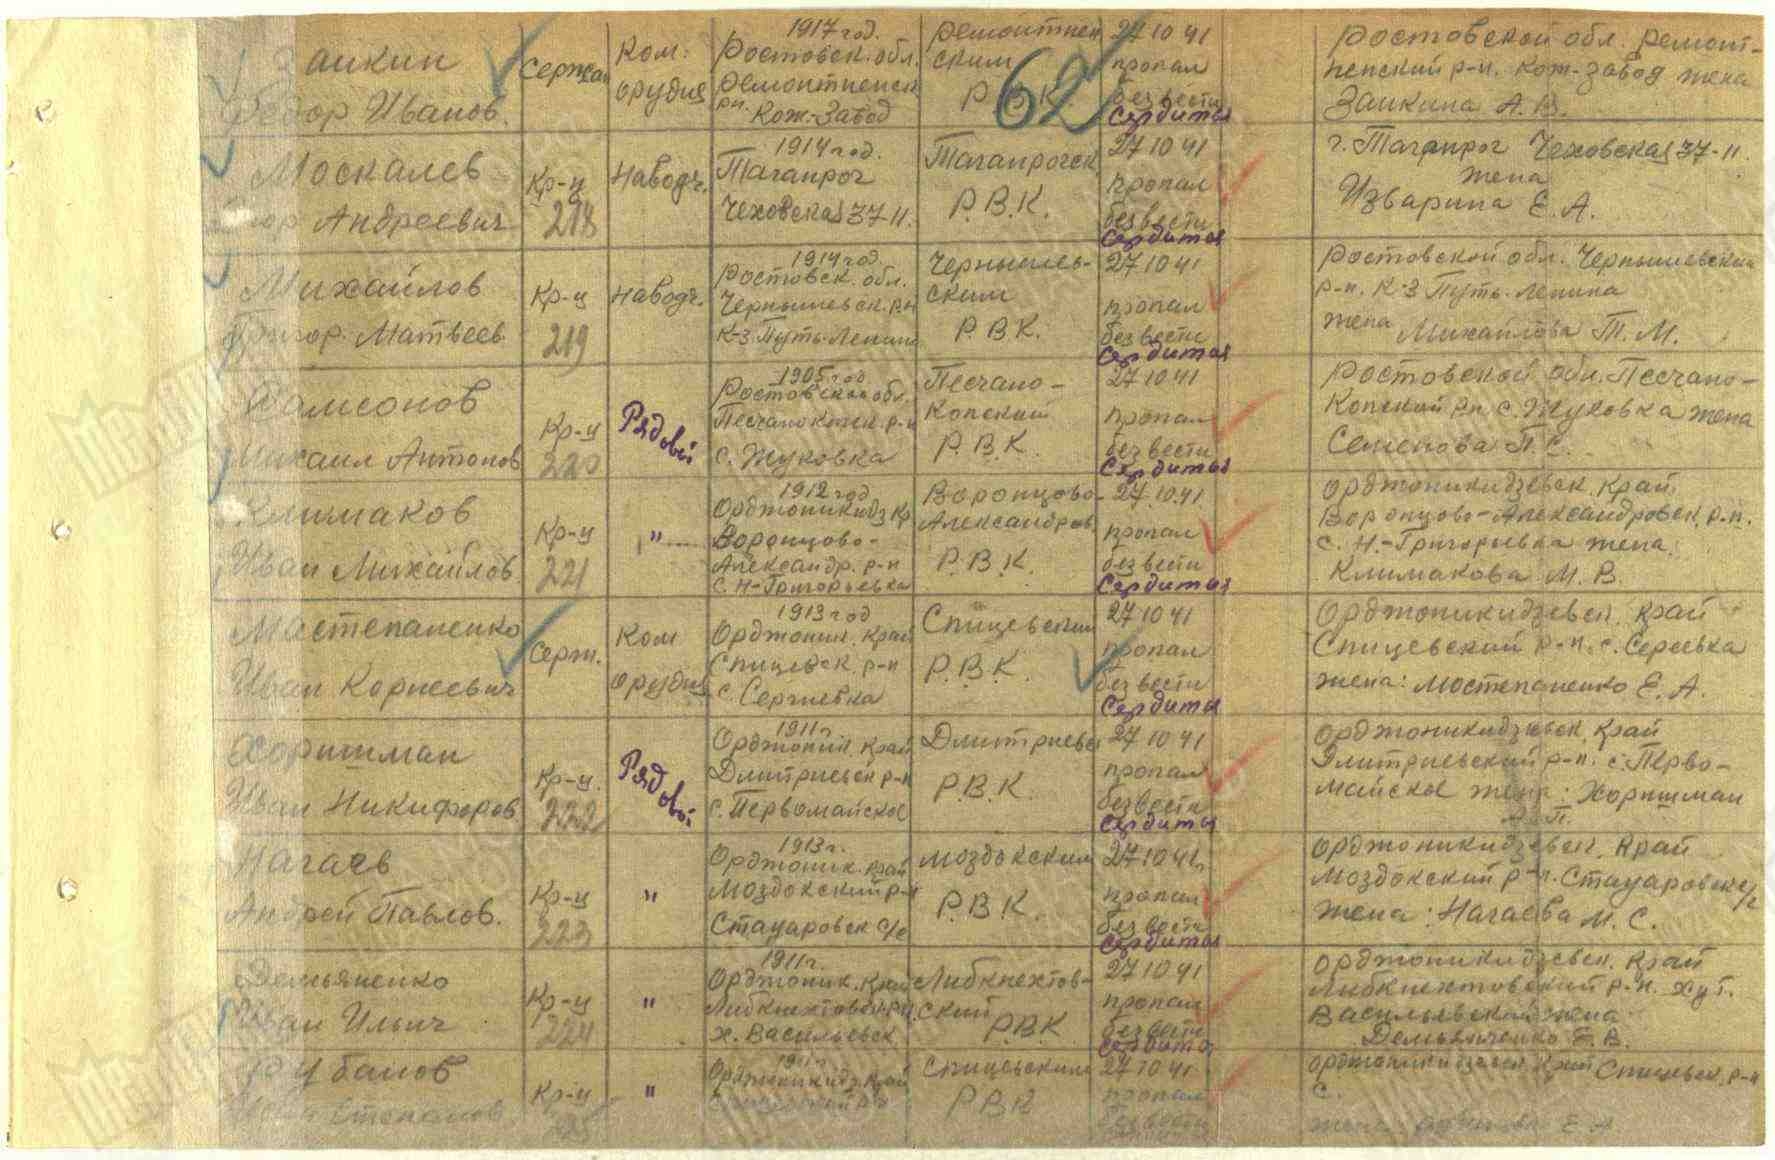 Заикин
Федор Иванов.
Сержан
Ком.
орудия
1917 год.
Ростовск. обл.
Ремонтненск
рн.
Кож-Завод
Ремонтнен
ским
Р.В.К.
62
27 10 41
пропал
без вести
Сердитыя
Ростовской обл. Ремонт-
ненский р-н. Кож-завод жена
Заикина А.В.
Москалев
Андреевич
Кр-ц
218
Наводч.
1914 год.
Таганрог
Чеховская 37-11.
Таганрогск
Р.В.К.
27 10 41
пропал
без вести
Сердитыя
г. Таганрог Чеховская 37-11.
жена
Изварина Е.А.
Михайлов
Григор. Матвеев
Кр-ц
219
Наводч.
1914 год.
Ростовск. обл.
Чернышевск. р-н
К-З Путь-Ленина
Чернышев-
ским
Р.В.К.
27 10 41
пропал
без вести
Сердитыя
Ростовской обл. Чернышевский
р-н. К-З Путь-Ленина
жена Михайлова Т.М.
Самсонов
Михаил Антонов
Кр-ц
220
Рядовой
1905 год
Ростовской обл.
Песчанокопск р-н
с. Жуковка
Песчано-
Копский
Р.В.К.
27 10 41
пропал
без вести
Сердитыя
Ростовской обл. Песчано-
Копский рн. с. Жуковка жена
Семенова П.
Климаков
Иван Михайлов
Кр-ц
221
"
1912 год
Орджоникидз Кр
Воронцово-
Александр. р-н
с. Н-Григорьевка
Воронцово-
Александров
Р.В.К.
27.10.41
пропал
без вести
Сердитыя
Орджоникидзевск. Край
Воронцово-Александровск р.н.
с. Н-Григорьевка жена:
Климакова М.В.
Мастепаненко
Иван Корнеевич
Серж.
Ком
орудия
1913 год
Орджоник. Край
Спицевск р-н
с. Сергиевка
Спицевским
Р.В.К.
27 10 41
пропал
без вести
Сердиты
Орджоникидзевск. Край
Спицевский р-н. с. Сергевка
жена: Мостепаненко Е.А.
Хоришман
Иван Никифоров
Кр-ц.
222
Рядовой
1911 г.
Орджоник. Край
Дмитриевск р-н
с. Первомайское
Дмитриевс
Р.В.К.
27 10 41
пропал
без вести
Сердиты
Орджоникидзевск Край
Дмитриевский р-н. с. Перво-
майское жена: Хоришман
П.
Нагаев
Андрей Павлов.
Кр-ц
223
"
1913 г.
Орджоник. Край
Моздокский р-н
Стацаровск с/с
Моздокским
Р.В.К.
27 10 41
пропал
без вести
Сердитыя
Орджоникидзевск. Край
Моздокский р-н. Стацаровск с/с
жена: Нагаева М.С.
Демьяненко
Иван Ильич
Кр-ц
224
"
1911 г.
Орджоник. Край
Либкнехтовск р-н
х. Васильевск
Либкнехтов-
ский
Р.В.К
27 10 41
пропал
без вести
Орджоникидзевск. Край
Либкнехтовский р-н. хут.
Васильевский жена
Демьянченко Е.В.
Рубанов
Иван Степанов
Кр-ц
"
1911 г.
Орджоникидз. Край
Спицевским
Р.В.К
27 10 41
пропал
без вести
Орджоникидзевск Край Спицевск. р-н
с.
жена Е.А.